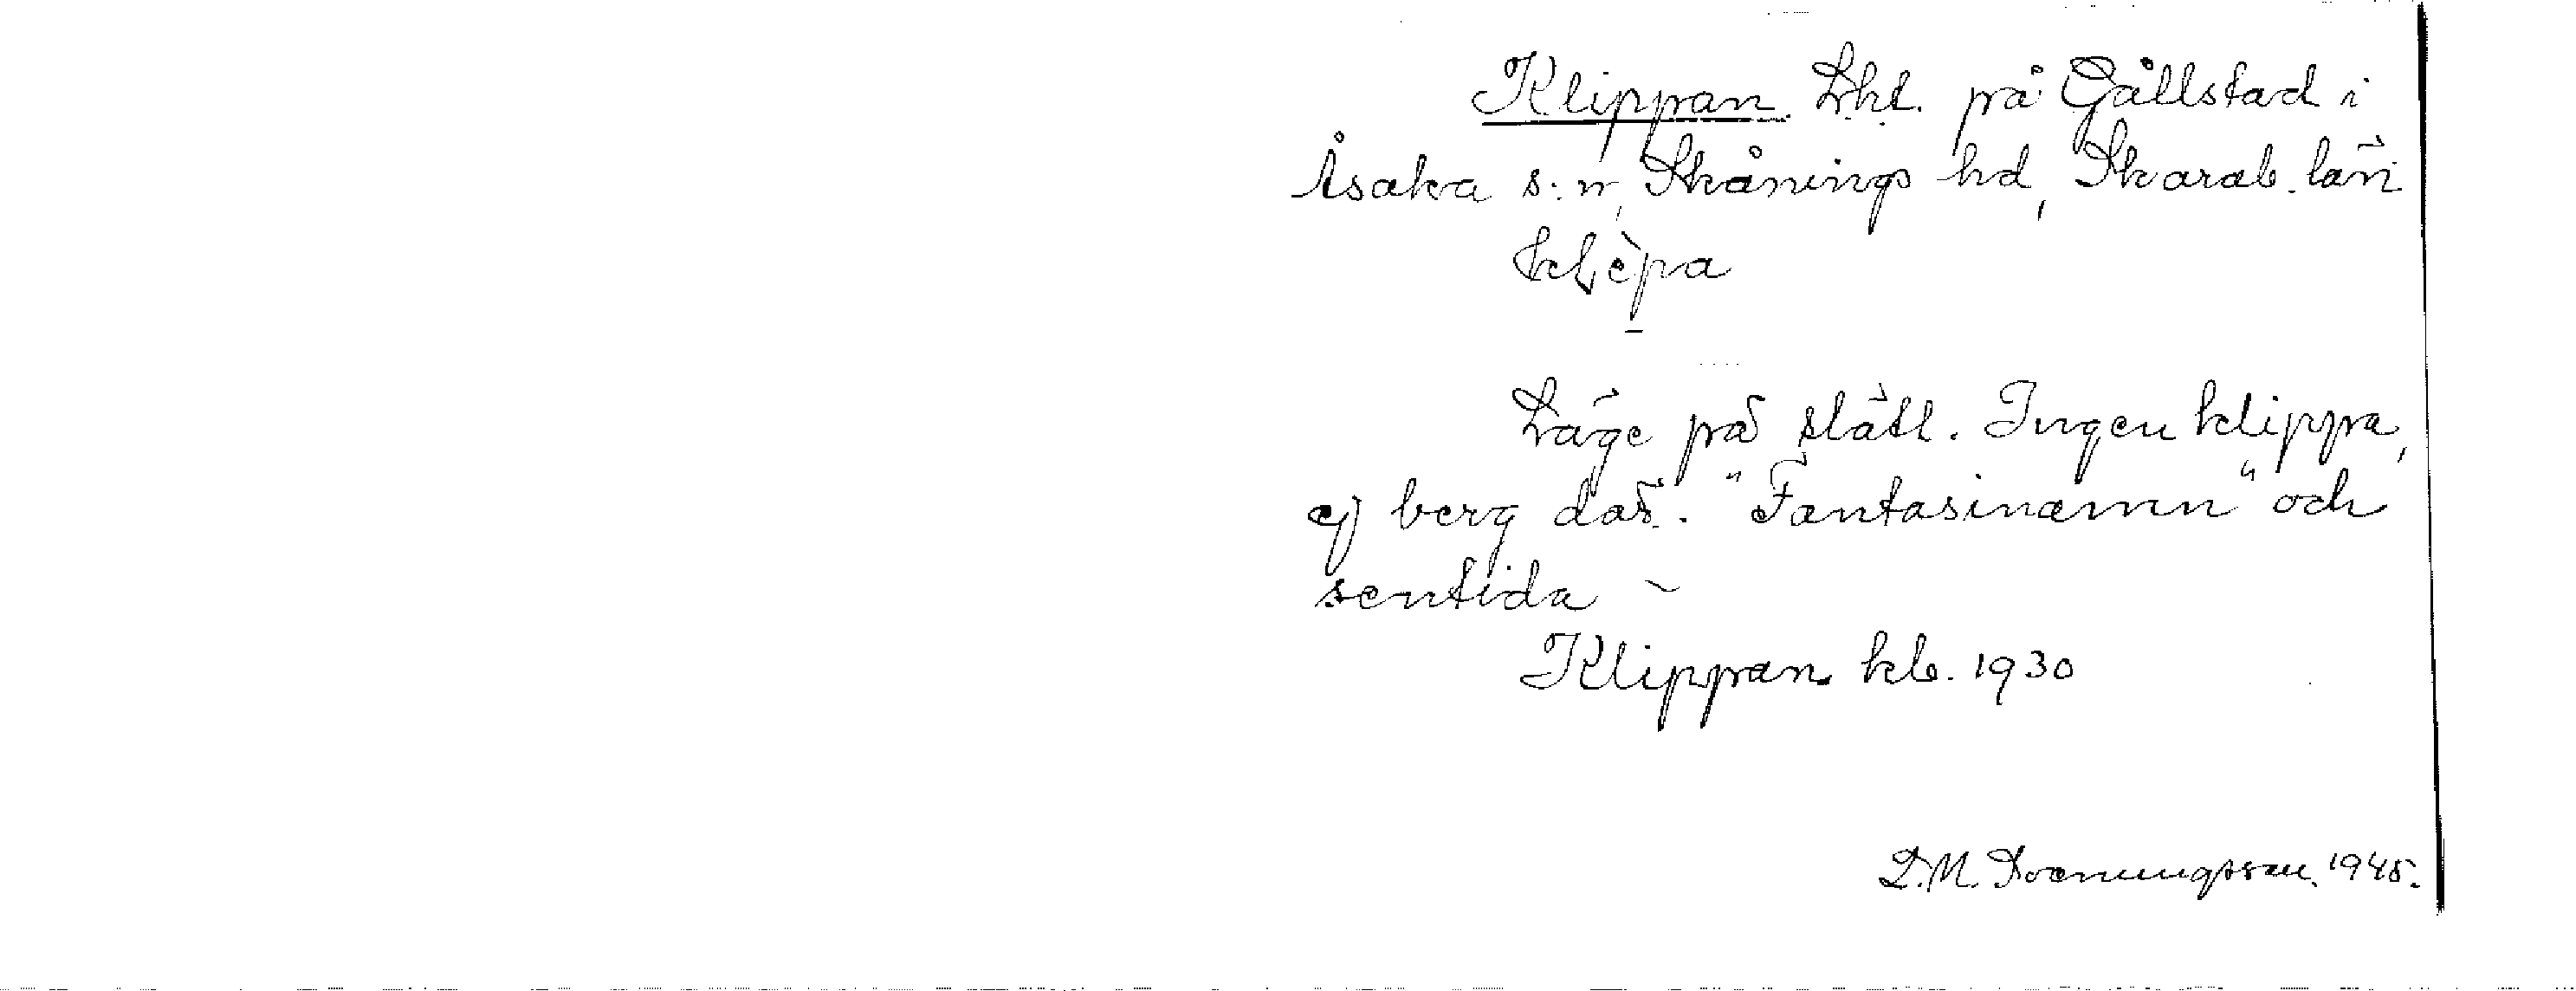 Klippan. Lht. på Gållstad i
Åsaka s:n, Skånings hd, Skarab. län
klèpa
Läge på slätt. Ingen klippa,
ej berg där. "Fantasinamn" och
sentida –
Klippan kb. 1930
1945.